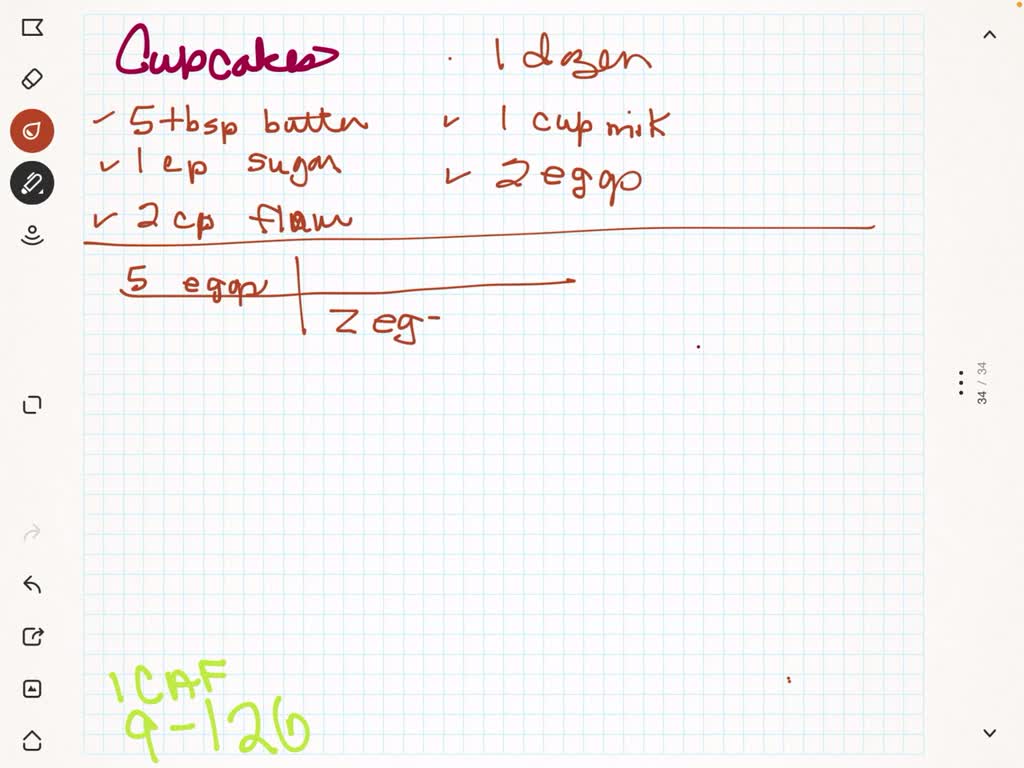 Cupcakes 1 dozen
✓ 5 tbsp butter ✓ 1 cup milk
✓ 1 cp sugar ✓ 2 eggs
✓ 2 cp flour
5 eggs
2 eg-
1 CAF
9-126
34 / 34